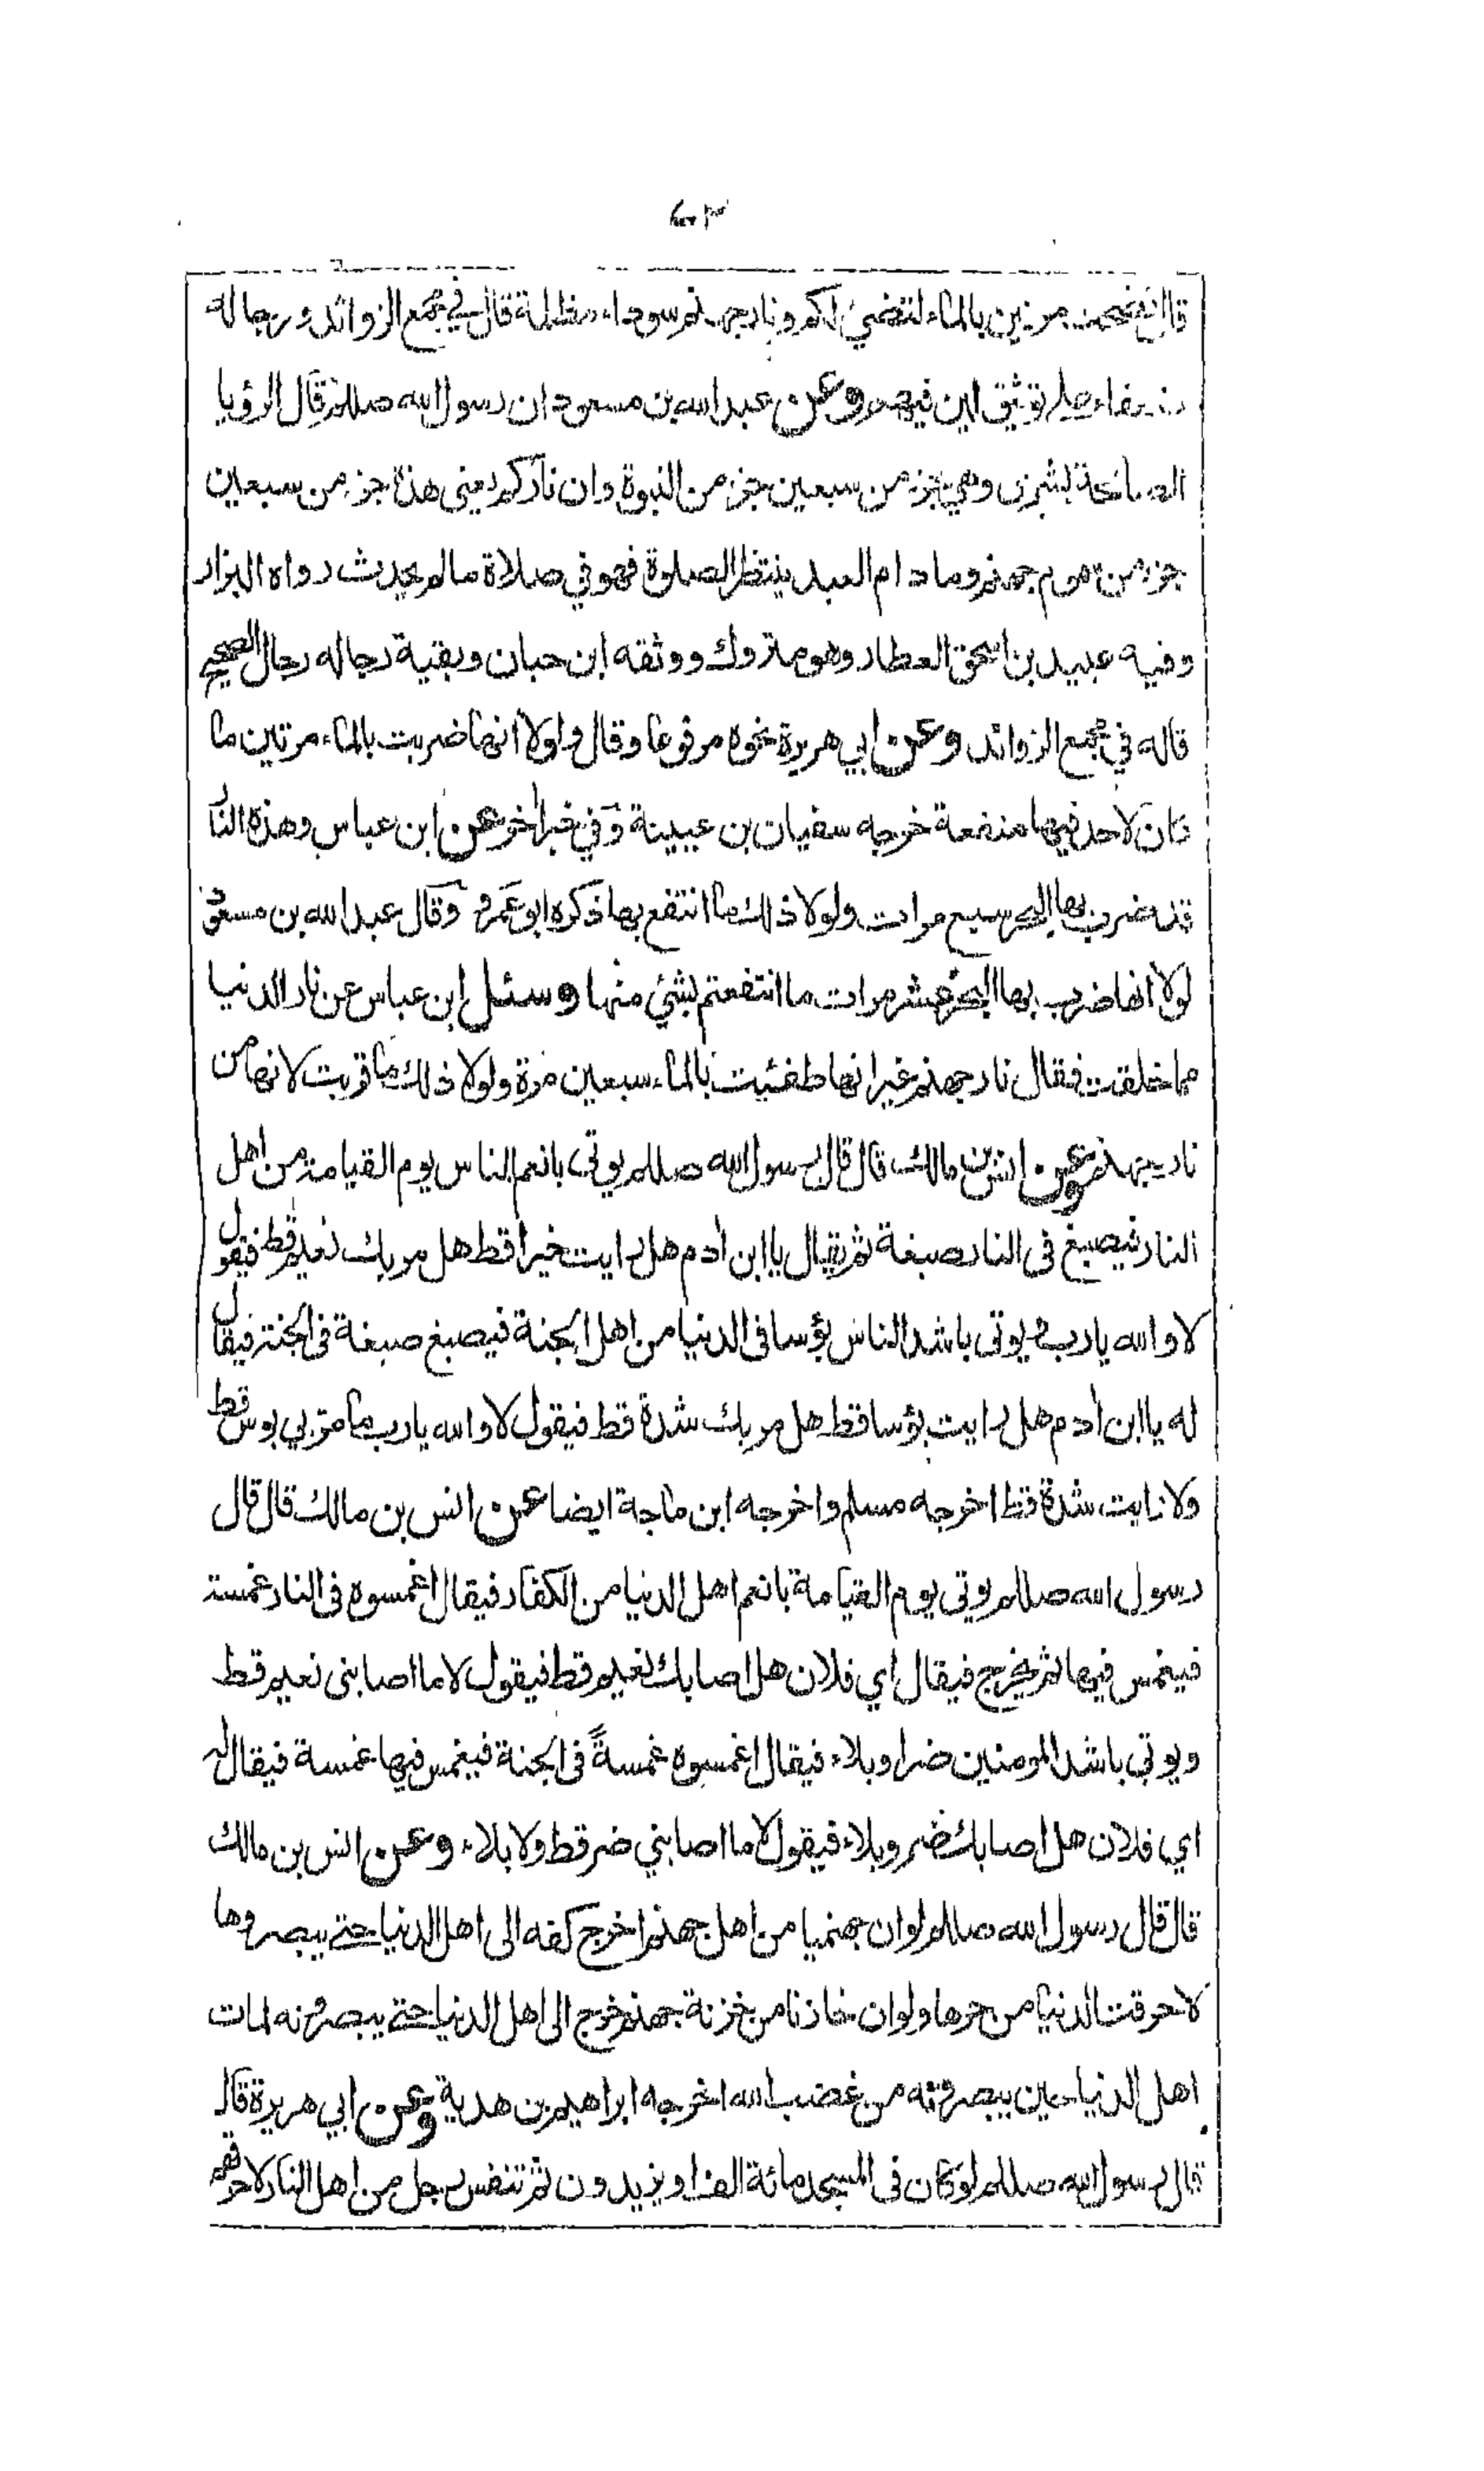 ٤٣
قال نضحت مرتين بالماء لتضئ لكم ونار جهنم سوداء مظلمة قال في مجمع الزوائد ورجاله
ضعفاء على توثيق لين فيهم وعن عبد الله بن مسعود ان رسول الله صللم قال الرؤيا
الصالحة بشرى وهي جزء من سبعين جزء من النبوة وان ناركم يعني هذه جزء من سبعين
جزء من سموم جهنم وما دام العبد ينتظر الصلوة فهو في صلاة ما لم يحدث رواه البزار
وفيه عبيد بن اسحق العطار وهو متروك ووثقه ابن حبان وبقية رجاله رجال الصحيح
قاله في مجمع الزوائد وعن ابي هريرة نحوه مرفوعا وقال ولولا انها ضربت بالماء مرتين ما
كان لاحد فيها منفعة خرجه سفيان بن عيينة وفي خبر اخر عن ابن عباس وهذه النار
قد ضرب بها البحر سبع مرات ولولا ذلك ما انتفع بها ذكره ابو عمر وقال عبد الله بن مسعود
لولا انها ضرب بها البحر عشر مرات ما انتفعتم بشئ منها وسئل ابن عباس عن نار الدنيا
مما خلقت فقال نار جهنم غير انها طفئيت بالماء سبعين مرة ولولا ذلك ما قربت لانها من
نار جهنم وعن انس بن مالك قال قال رسول الله صللم يوتى بانعم الناس يوم القيامة من اهل
النار فيصبغ فى النار صبغة ثم يقال يا ابن ادم هل رايت خيرا قط هل مر بك نعيم قط فيقول
لا والله يا رب ويوتى باشد الناس بؤسا فى الدنيا من اهل الجنة فيصبغ صبغة فى الجنة فيقال
له يا ابن ادم هل رايت بؤسا قط هل مر بك شدة قط فيقول لا والله يا رب ما مر بي بوس قط
ولا رايت شدة قط اخرجه مسلم واخرجه ابن ماجة ايضا عن انس بن مالك قال قال
رسول الله صللم يوتى يوم القيامة بانعم اهل الدنيا من الكفار فيقال اغمسوه فى النار غمسة
فيغمس فيها ثم يخرج فيقال اي فلان هل اصابك نعيم قط فيقول لا ما اصابنى نعيم قط
ويوتي باشد المومنين ضرا وبلاء فيقال اغمسوه غمسةً فى الجنة فيغمس فيها غمسة فيقال له
اي فلان هل اصابك ضر وبلاء فيقول لا ما اصابني ضر قط ولا بلاء وعن انس بن مالك
قال قال رسول الله صللم لو ان جهنميا من اهل جهنم اخرج كفه الى اهل الدنيا حتى يبصروها
لاحرقت الدنيا من حرها ولو ان خازنا من خزنة جهنم خرج الى اهل الدنيا حتى يبصرونه لمات
اهل الدنيا حين يبصرونه من غضب الله اخرجه ابراهيم بن هدية وعن ابي هريرة قال
قال رسول الله صللم لو كان فى المسجد مائة الف او يزيدون ثم تنفس رجل من اهل النار لاحرقهم